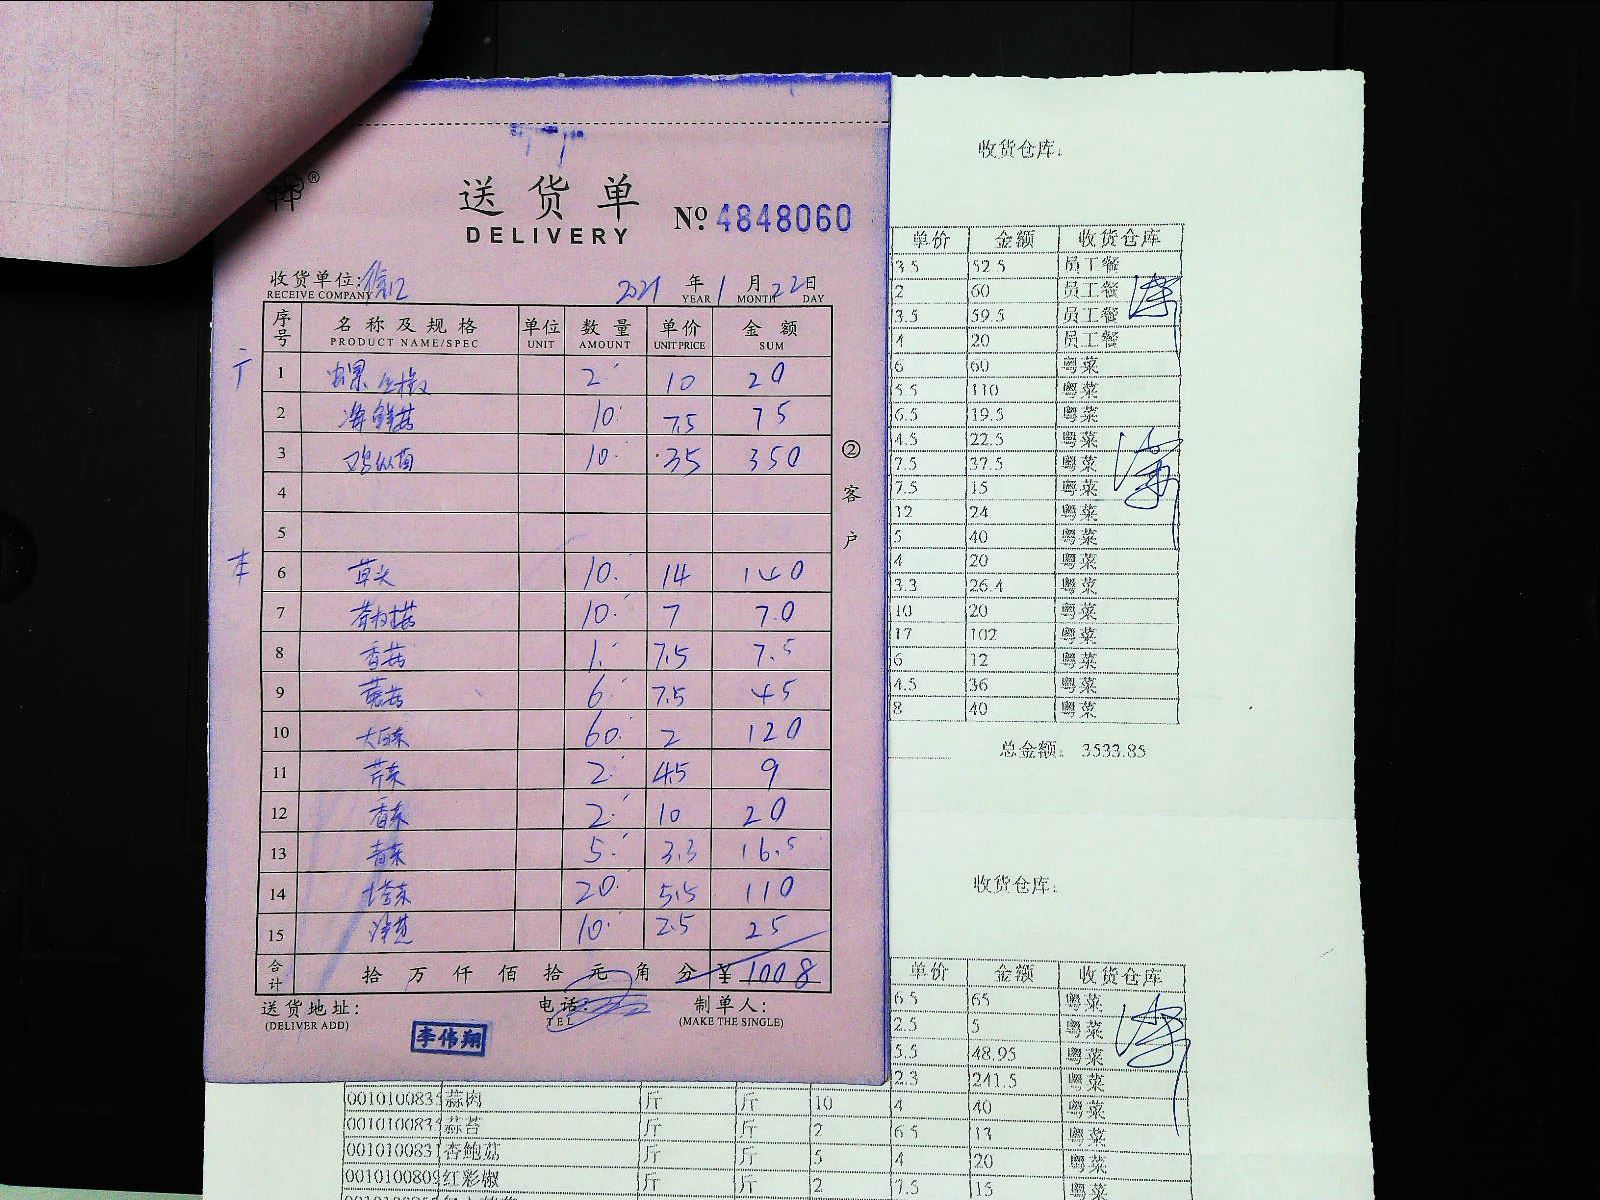 送货单
DELIVERY
№ 4848060
收货单位:
RECEIVE COMPANY
2021 年 1 月 22 日
YEAR MONTH DAY
序号 名称及规格 单位 数量 单价 金额
PRODUCT NAME/SPEC UNIT AMOUNT UNIT PRICE SUM
1 2 10 20
2 海鲜菇 10 7.5 75
3 鸡纵菌 10 35 350
4
5
6 草头 10 14 140
7 10 7 7.0
8 香菇 1 7.5 7.5
9 蘑菇 6 7.5 45
10 大白菜 60 2 120
11 芹菜 2 4.5 9
12 香菜 2 10 20
13 青菜 5 3.3 16.5
14 塔菜 20 5.5 110
15 洋葱 10 2.5 25
合计 拾 万 仟 佰 拾 元 角 分 ¥ 1008
送货地址:
(DELIVER ADD)
电话:
TEL
制单人:
(MAKE THE SINGLE)
李伟翔
② 客户
收货仓库:
单价 金额 收货仓库
3.5 52.5 员工餐
2 60 员工餐
3.5 59.5 员工餐
4 20 员工餐
6 60 粤菜
5.5 110 粤菜
6.5 19.5 粤菜
4.5 22.5 粤菜
7.5 37.5 粤菜
7.5 15 粤菜
12 24 粤菜
5 40 粤菜
4 20 粤菜
3.3 26.4 粤菜
10 20 粤菜
17 102 粤菜
6 12 粤菜
4.5 36 粤菜
8 40 粤菜
总金额: 3533.85
收货仓库:
单价 金额 收货仓库
6.5 65 粤菜
2.5 5 粤菜
5.5 48.95 粤菜
2.3 241.5 粤菜
001010083 蒜肉 斤 斤 10 4 40 粤菜
001010083 蒜苔 斤 斤 2 6.5 13 粤菜
001010083 杏鲍菇 斤 斤 5 4 20 粤菜
001010080 红彩椒 斤 斤 2 7.5 15 粤菜